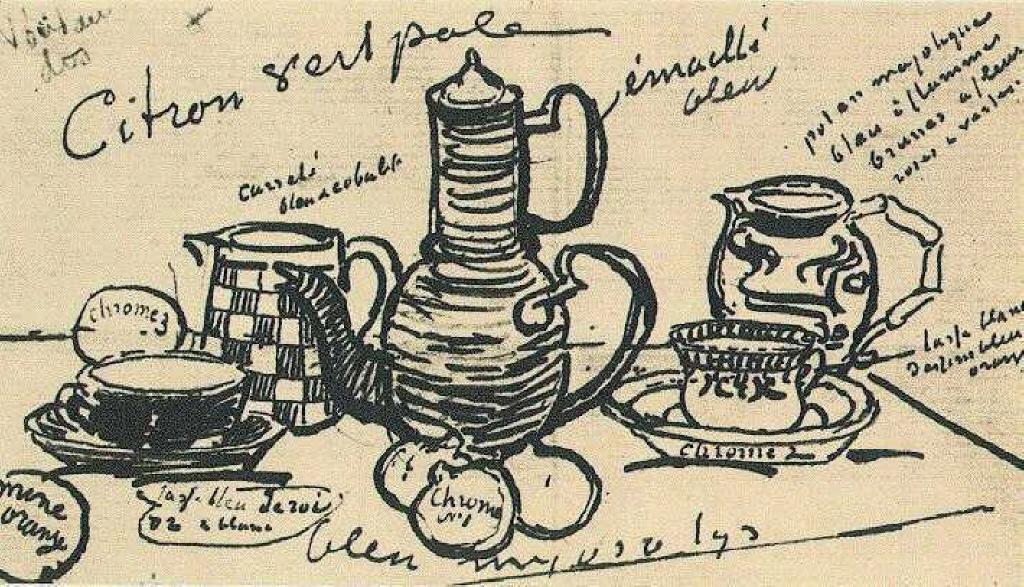 Voir au
dos
Citron vert pale
émaillé
bleu
pot en majolique
bleu à
brunes a fleurs
roses
carrelé
bleu cobalt
chrome 3
tasse
orangé
chrome 2
Chrome
No 1
mine
orange
tasse bleu de roi
or & blanc
bleu myosotys